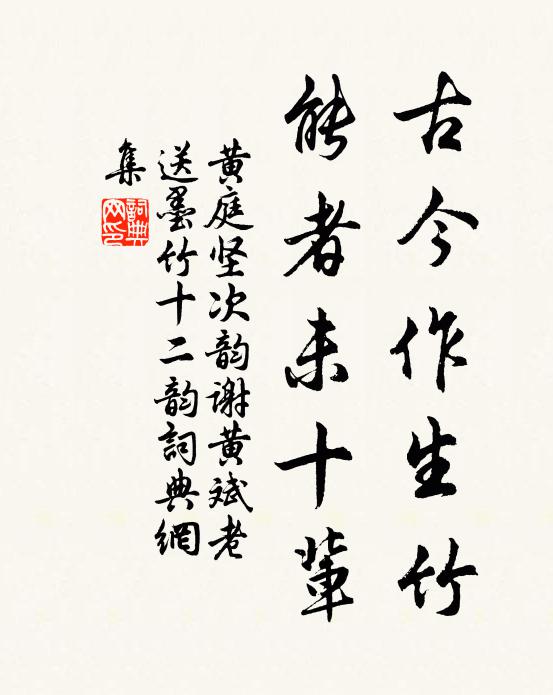 古今作生竹
能者未十輩
黄庭坚次韵谢黄斌老
送墨竹十二韵詞典網
集
詞典網印